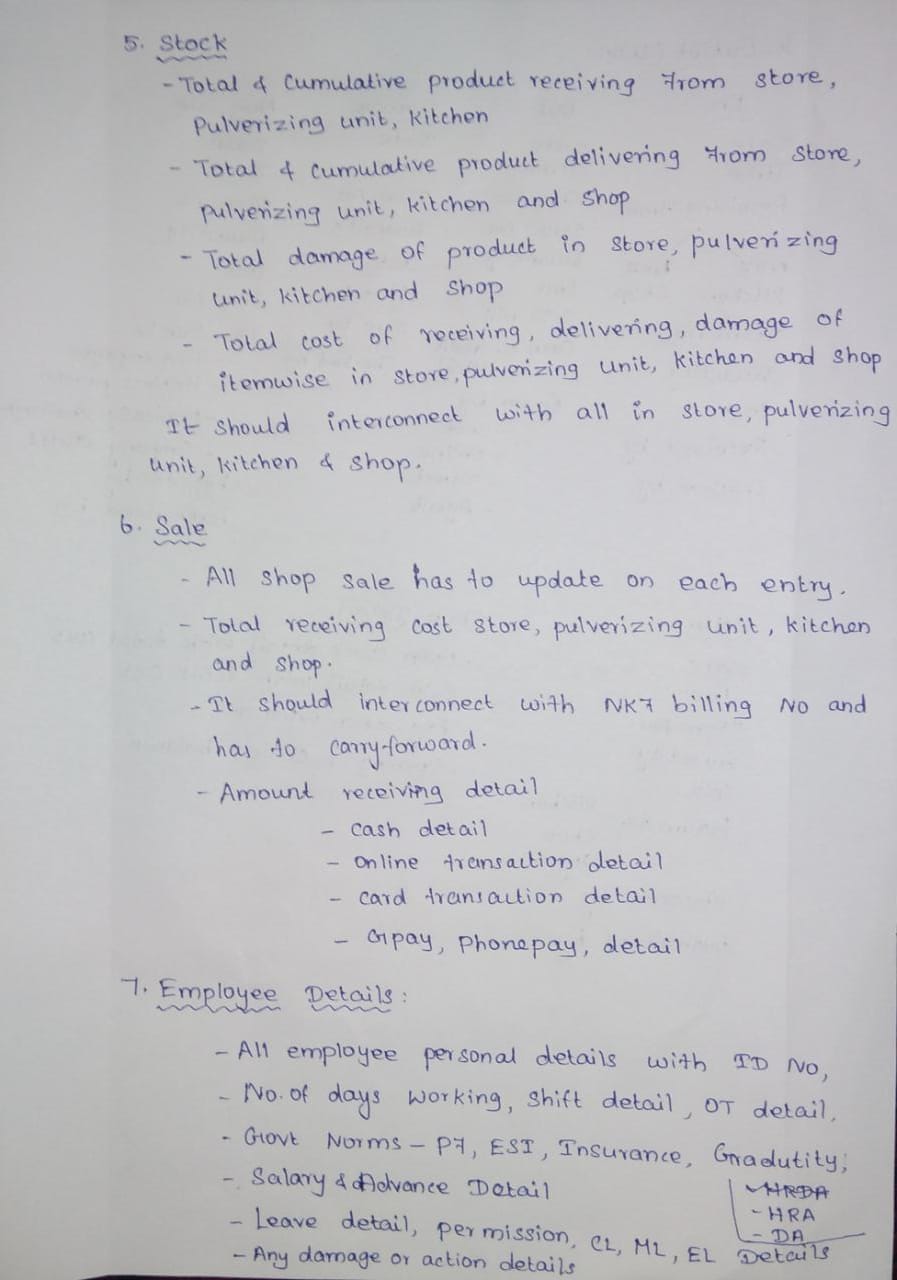 5. Stock
- Total & Cumulative product receiving from store,
Pulverizing unit, Kitchen
- Total & cumulative product delivering from store,
pulverizing unit, kitchen and shop
- Total damage of product in store, pulverizing
unit, kitchen and shop
- Total cost of receiving, delivering, damage of
itemwise in store, pulverizing unit, kitchen and shop
It should interconnect with all in store, pulverizing
unit, kitchen & shop.
6. Sale
- All shop sale has to update on each entry.
- Total receiving cost store, pulverizing unit, kitchen
and shop.
- It should interconnect with NKF billing No and
has to carry-forward.
- Amount receiving detail
- cash detail
- online transaction detail
- card transaction detail
- Gpay, Phonepay, detail
7. Employee Details:
- All employee personal details with ID No,
- No. of days working, shift detail, OT detail,
- Govt Norms - PF, ESI, Insurance, Gradutity,
- Salary & Advance Detail
- HRDA
- HRA
- DA
- Leave detail, permission, CL, ML, EL Details
- Any damage or action details